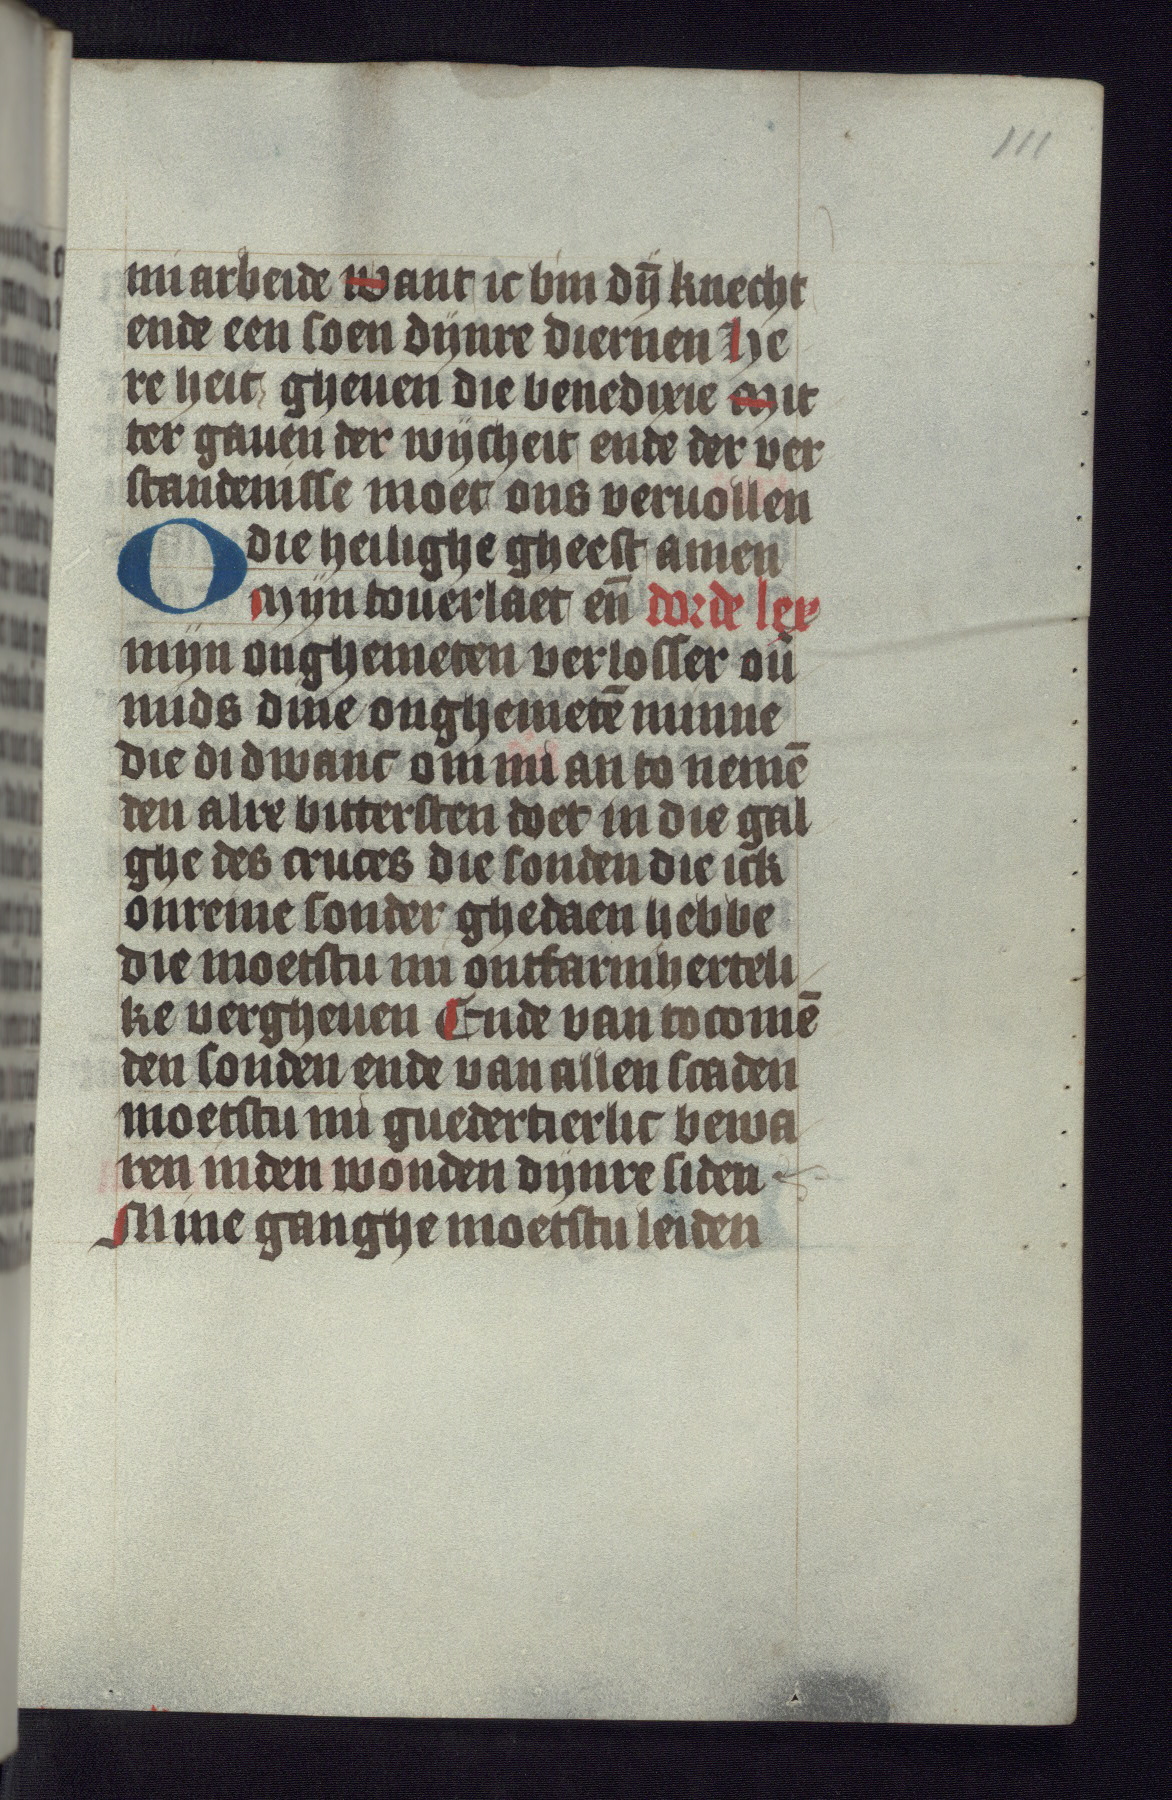 111
mi arbeide want ic bin dȳ knecht
ende een soen dijnre diernen he
re heit gheuen die benedixie Mit
ter gauen der wijsheit ende der ver
standenisse moet ons veruollen
die heilighe gheest amen
O Mijn touerlaet en̄ dorde lex
mijn onghemeten verlosser ou̅
mids dine onghemetē minne
die di dwanc om mi an to nemē
den alre bittersten doet in die gal
ghe des cruces die sonden die ick
onreine sonder ghedaen hebbe
die moetstu mi ontfarmherteli
ke vergheuen Ende van tocomē
den sonden ende van allen scaden
moetstu mi guedertierlic bewa
ren in den wonden dijnre siden
Mine ganghe moetstu leiden